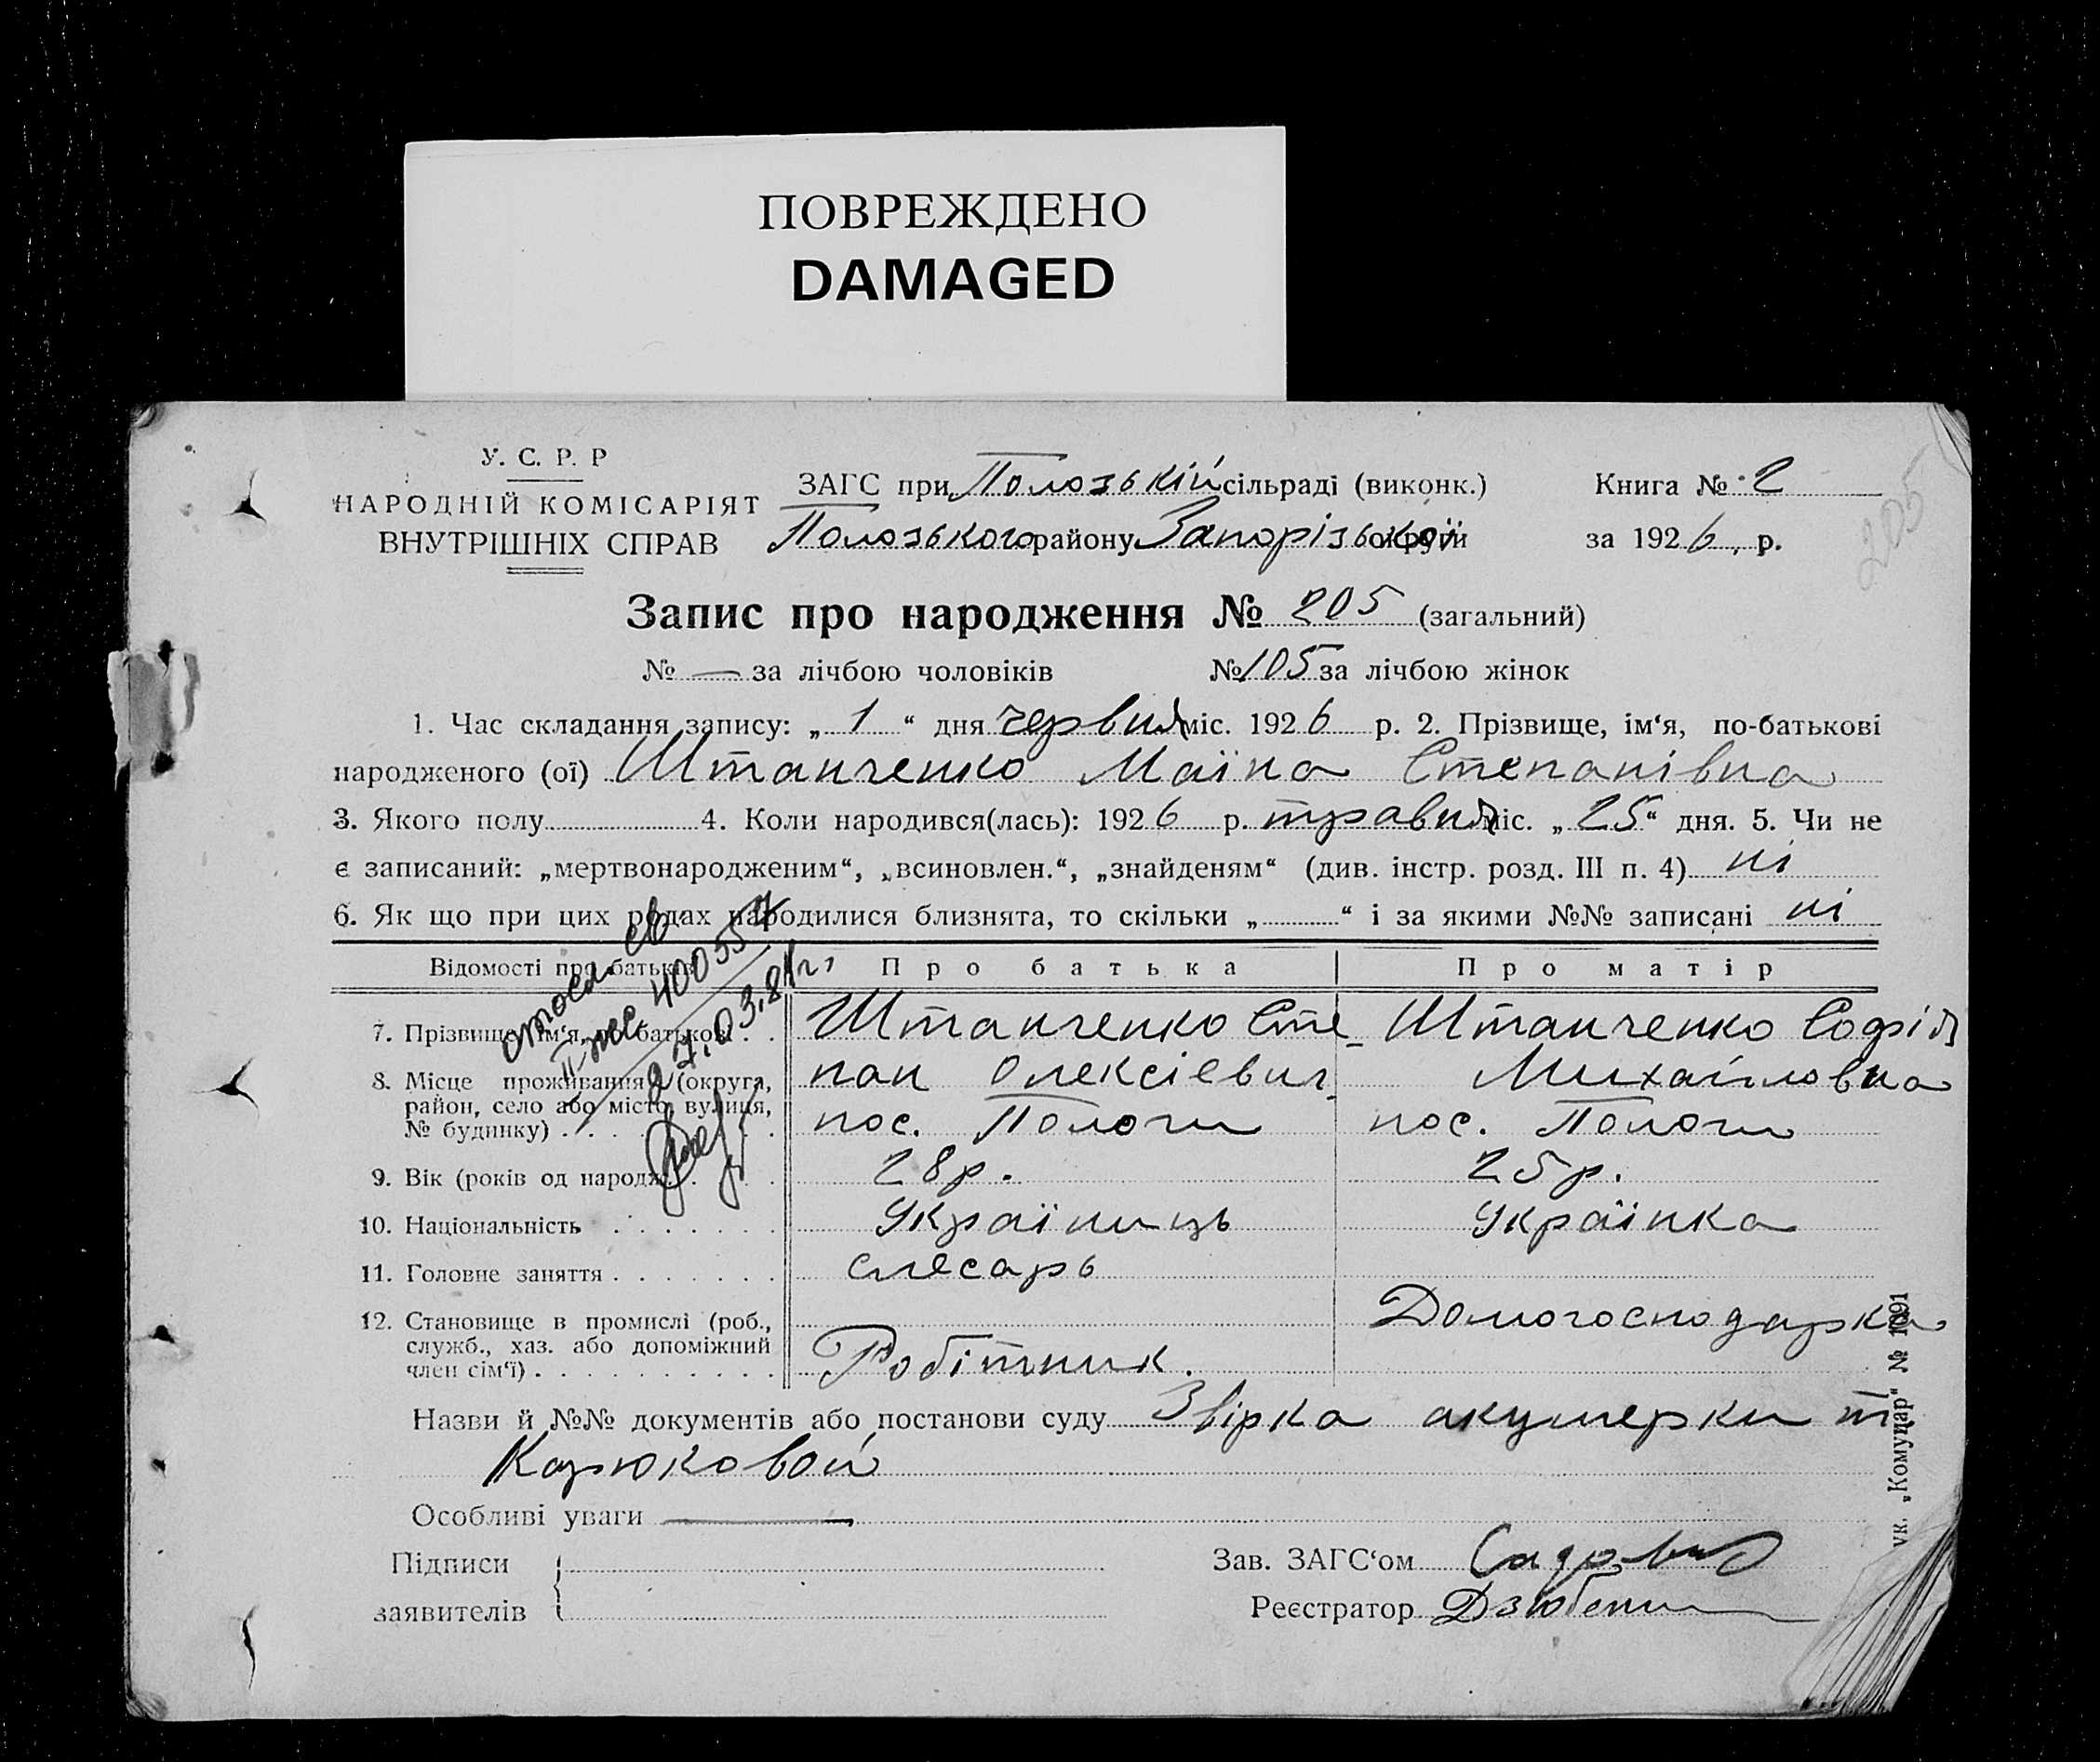 ПОВРЕЖДЕНО
DAMAGED
У. С. Р. Р
НАРОДНІЙ КОМІСАРІЯТ
ВНУТРІШНІХ СПРАВ
ЗАГС при Полозькій сільраді (виконк.)
Полозького району Запорізької округи
Книга № 2
за 1926, р.
205
Запис про народження № 205 (загальний)
№ — за лічбою чоловіків № 105 за лічбою жінок
1. Час складання запису: „ 1 “ дня червня міс. 1926 р. 2. Прізвище, ім‘я, по-батькові
народженого (ої) Штанченко Маїна Степанівна
3. Якого полу 4. Коли народився(лась): 1926 р. травня міс. „ 25 “ дня. 5. Чи не
є записаний: „мертвонародженим“, „всиновлен.“, „знайденям“ (див. інстр. розд. III п. 4) ні
6. Як що при цих родах народилися близнята, то скільки „ “ і за якими №№ записані ні
Відомості про батьків Про батька Про матір
7. Прізвище, ім‘я, по-батькові . . Штанченко Сте- Штанченко Софія
8. Місце проживання (округа, пан Олексієвич Михайловна
район, село або місто, вулиця,
№ будинку) . . . . пос. Пологи пос. Пологи
9. Вік (років од народж. . . 28 р. 25 р.
10. Національність . . . . . . . Українець Українка
11. Головне заняття . . . . . . . слесарь
12. Становище в промислі (роб., Домогосподарка
служб., хаз. або допоміжний
член сім‘ї) . . . . . . . . . . Робітник.
400557
27.03.81г.
Назви й №№ документів або постанови суду Звірка акушерки т.
Карюковой
Особливі уваги —
Підписи
заявителів
Зав. ЗАГС‘ом
Реєстратор Дзюбен
ук. „Комунар“ № 1091